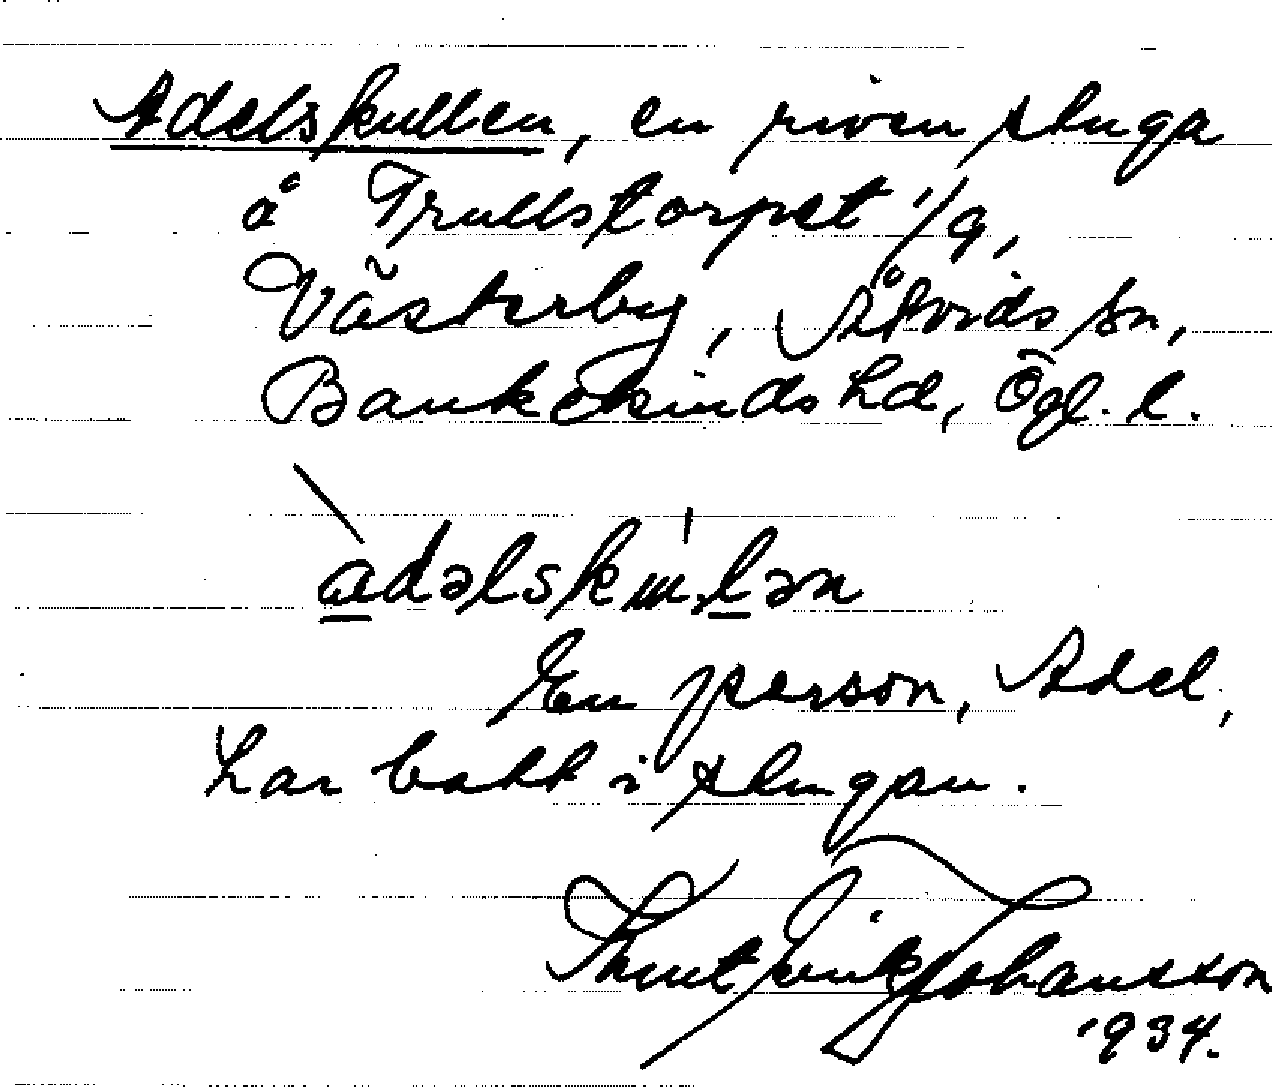 Adelskullen, en riven stuga
å Trullstorpet 1/9,
Västerby, Åtvids sn,
Bankekinds hd, Ögl. l.
adəlskɯlən
En person, Adel,
har bott i stugan.
Knut Erik Johansson
1934.